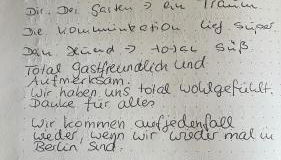 Dir. Der Garten → ein Traum
Die Kommunikation lief super
Dein Hund → total süß.
Total gastfreundlich und
Aufmerksam.
Wir haben uns total wohlgefühlt.
Danke für alles
Wir kommen aufjedenfall
wieder, wenn wir wieder mal in
Berlin sind.